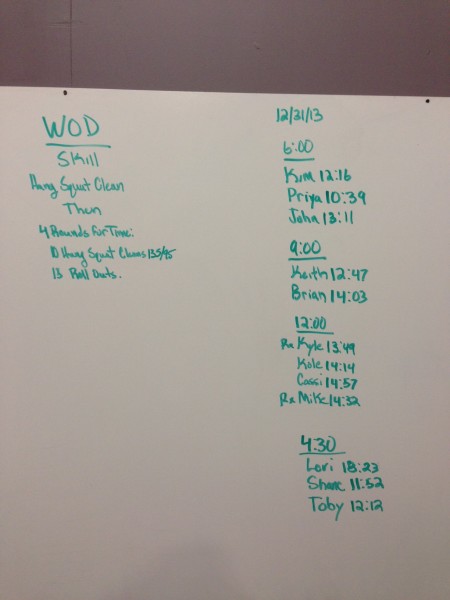 WOD
Skill
Hang Squat Clean
Then
4 Rounds for Time:
10 Hang Squat Cleans 135/95
13 Roll Outs.
12/31/13
6:00
Kim 12:16
Priya 10:39
John 13:11
9:00
Keith 12:47
Brian 14:03
12:00
Rx Kyle 13:49
Kole 14:14
Cassi 14:57
Rx Mike 14:32
4:30
Lori 18:23
Shane 11:52
Toby 12:12